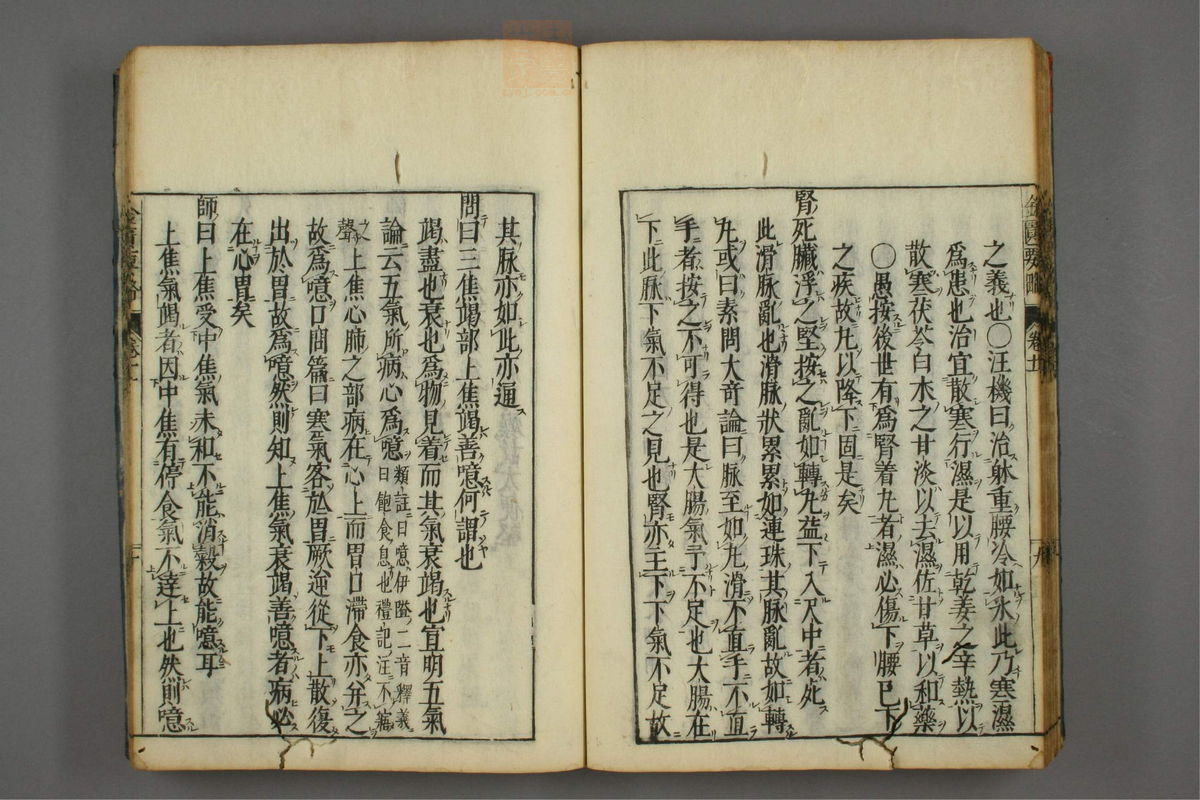 之義也○汪機曰治躰重腰冷如氷此乃寒濕
爲患也治宜散寒行濕是以用乾姜之辛熱以
散寒茯苓白朮之甘淡以去濕佐甘草以和藥
○愚按後世有爲腎着丸者濕必傷下腰已下
之疾故丸以降下固是矣
腎死臟浮之堅按之亂如轉丸益下入尺中者死
此滑脉亂也滑脉狀累累如連珠其脉亂故如轉
丸或曰素問大奇論曰脉至如丸滑不直手不直
手者按之不可得也是大腸氣予不足也大腸在
下此脉下氣不足之見也腎亦主下下氣不足故
其脉亦如此亦通
問曰三焦竭部上焦竭善噫何謂也
竭盡也衰也爲物見着而其氣衰竭也宣明五氣
論云五氣所病心爲噫類註曰噫伊隘二音釋義曰飽食息也禮記注不寤
之聲上焦心肺之部病在心上而胃口滯食亦幷之
故爲噫口問篇曰寒氣客於胃厥逆從下上散復
出於胃故爲噫然則知上焦氣衰竭善噫者病必
在心胃矣
師曰上焦受中焦氣未和不能消穀故能噫耳
上焦氣竭者因中焦有停食氣不達上也然則噫